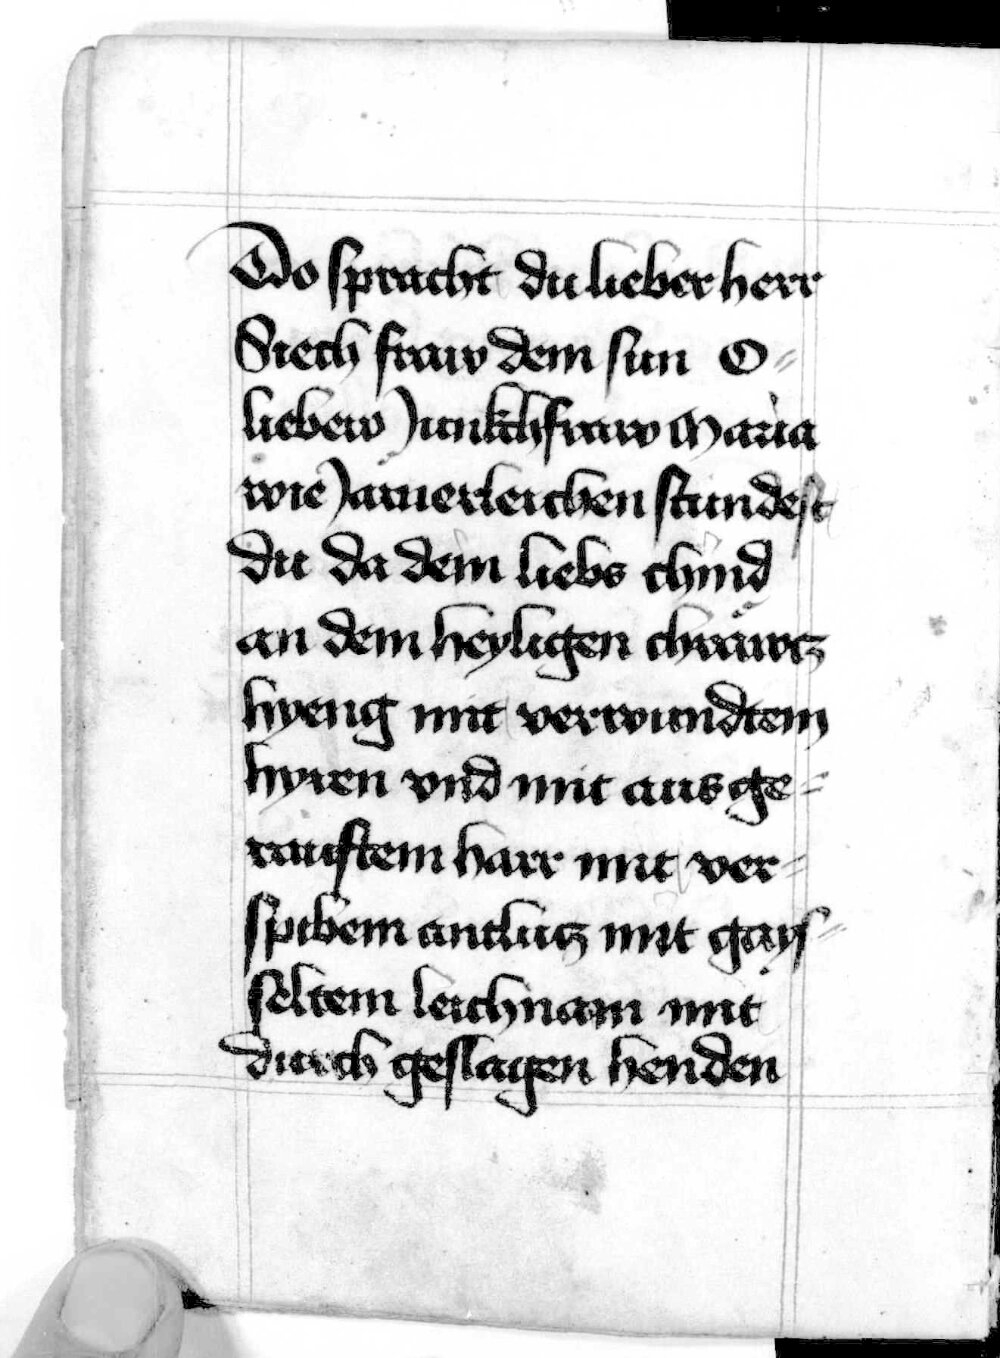 Do spracht du lieber herr
Siech fraw dem sun O=
liebew Junkchfraw Maria
wie Jamerleichen stundest
du da dein liebs chind
an dem heyligen chrawtz
hyeng mit verwundtem
hyren vnd mit aus ge=
rauftem harr mit ver=
spibem antlucz mit gays=
seltem leichnam mit
durch geslagen henden